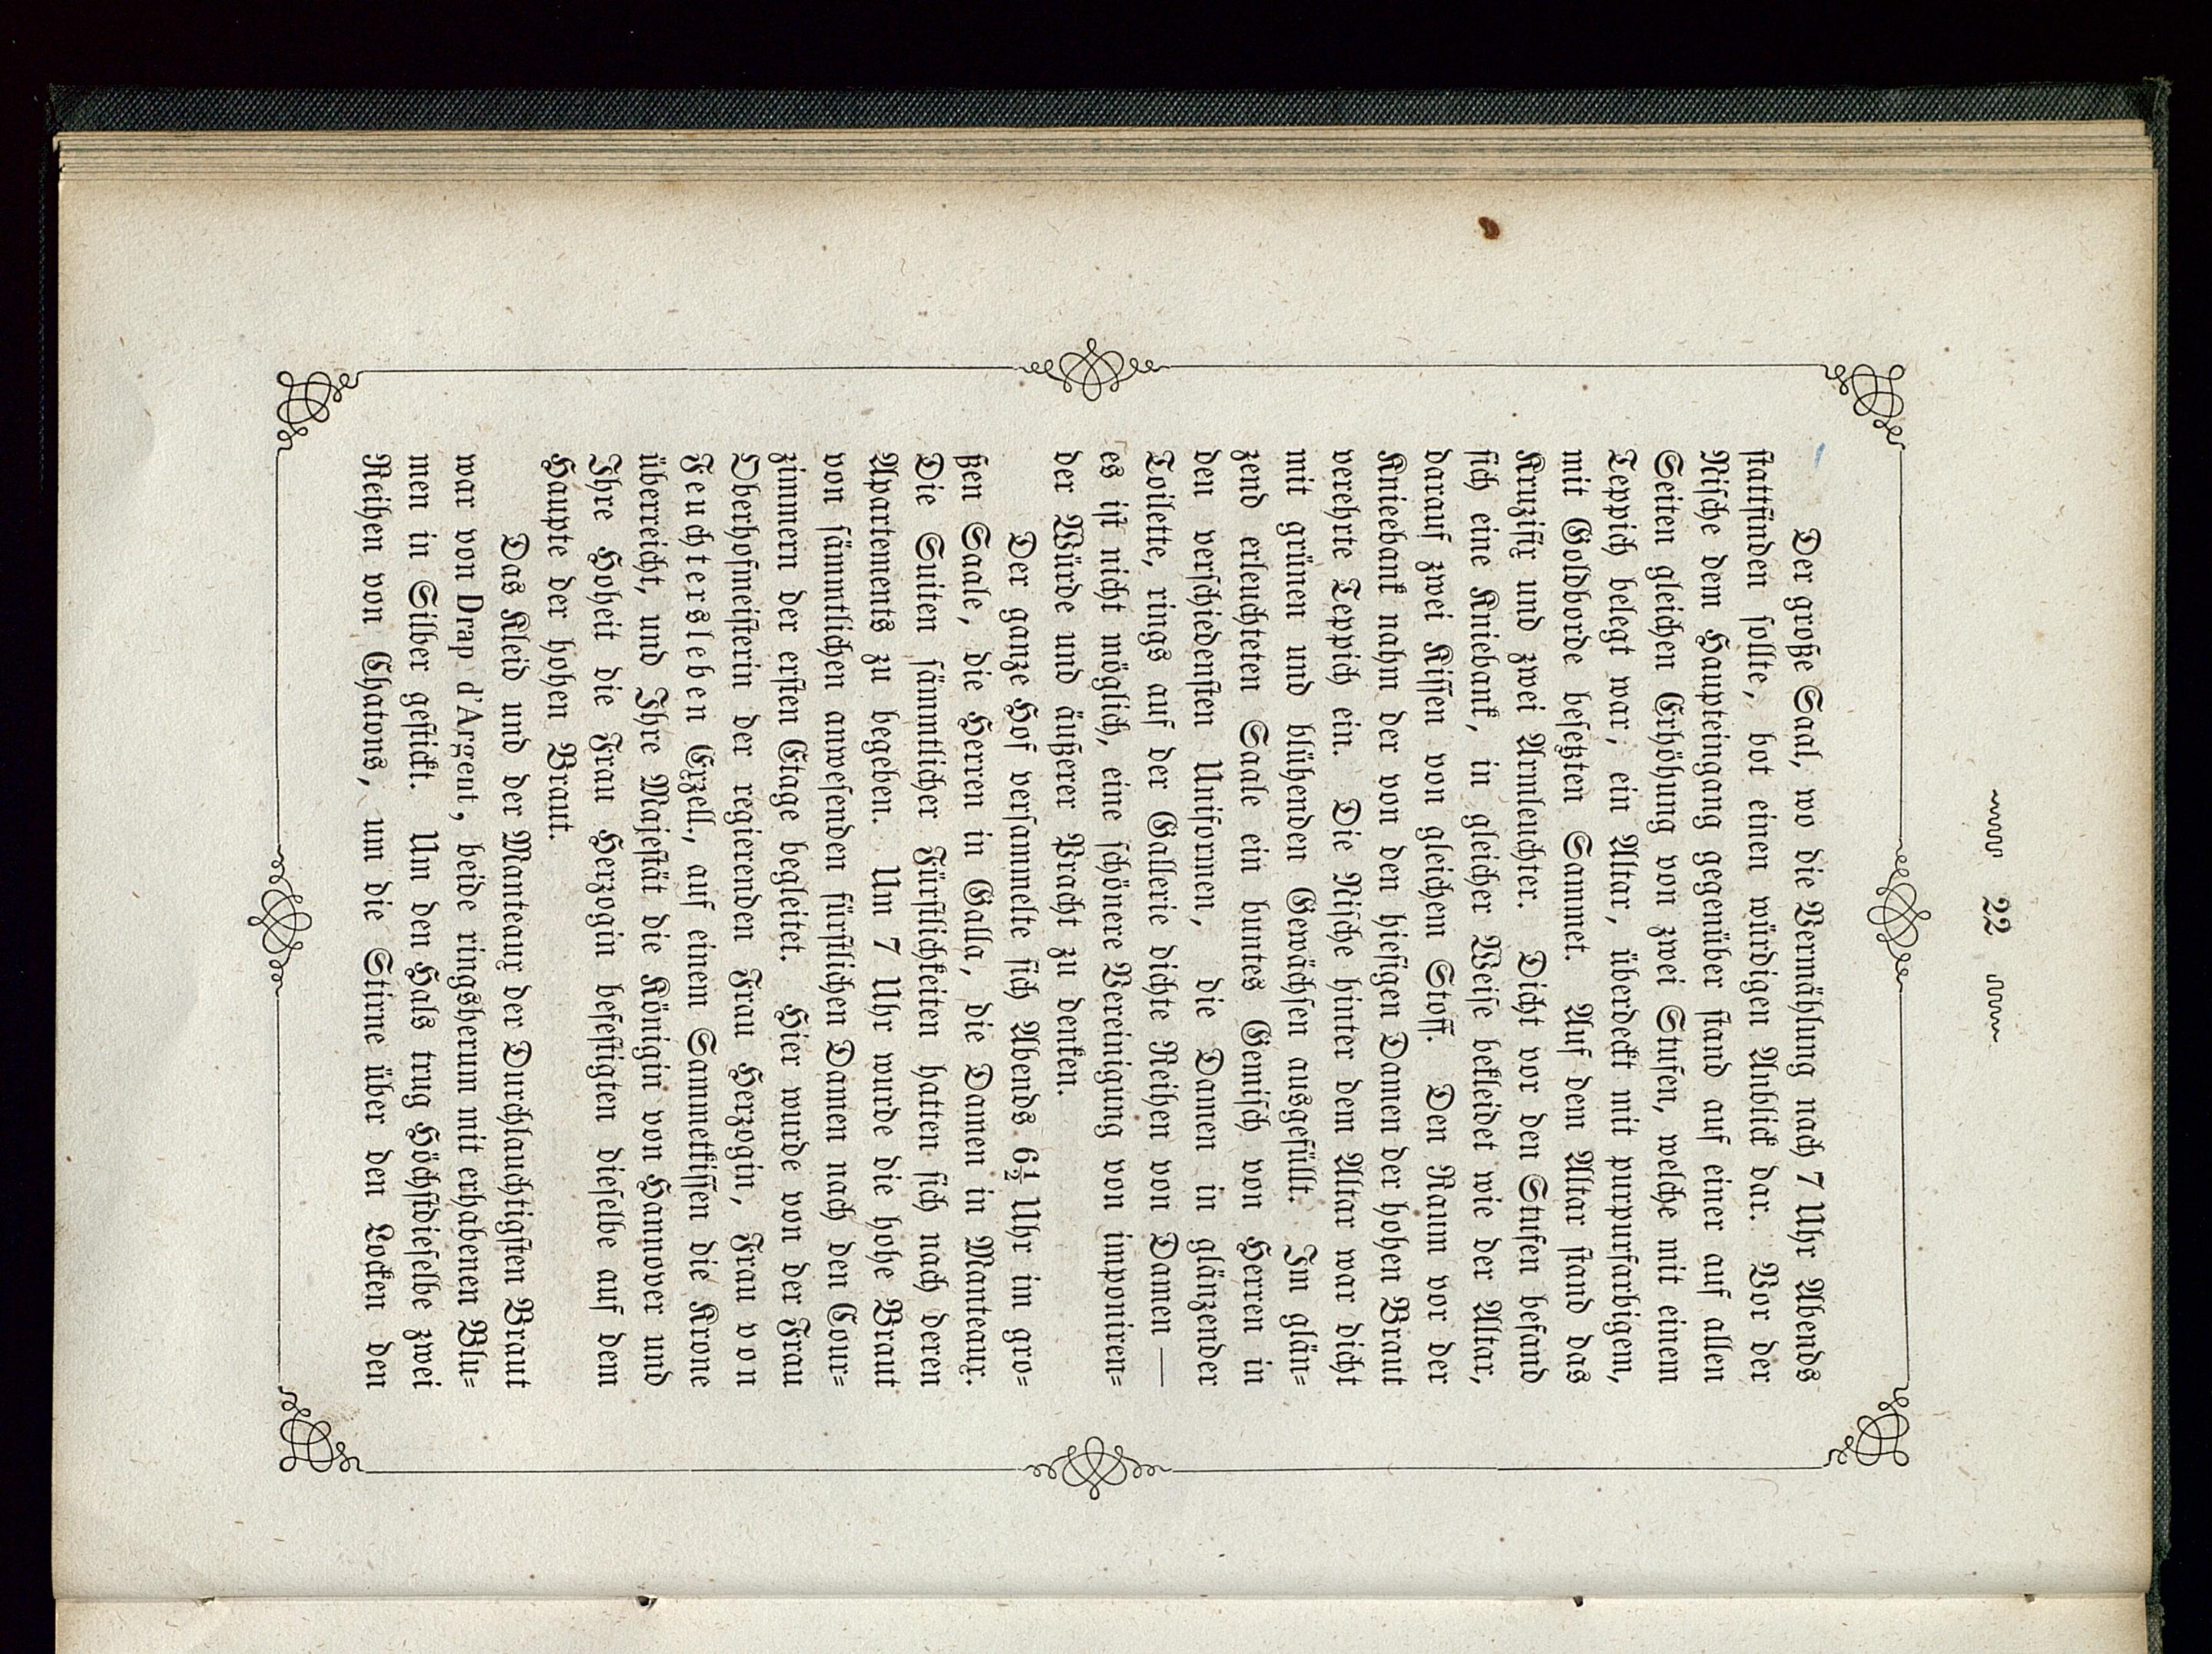 22
Der große Saal, wo die Vermählung nach 7 Uhr Abends
stattfinden sollte, bot einen würdigen Anblick dar. Vor der
Nische dem Haupteingang gegenüber stand auf einer auf allen
Seiten gleichen Erhöhung von zwei Stufen, welche mit einem
Teppich belegt war, ein Altar, überdeckt mit purpurfarbigem,
mit Goldborde besetzten Sammet. Auf dem Altar stand das
Kruzifix und zwei Armleuchter. Dicht vor den Stufen befand
sich eine Kniebank, in gleicher Weise bekleidet wie der Altar,
darauf zwei Kissen von gleichem Stoff. Den Raum vor der
Knieebank nahm der von den hiesigen Damen der hohen Braut
verehrte Teppich ein. Die Nische hinter dem Altar war dicht
mit grünen und blühenden Gewächsen ausgefüllt. Im glän-
zend erleuchteten Saale ein buntes Gemisch von Herren in
den verschiedensten Uniformen, die Damen in glänzender
Toilette, rings auf der Gallerie dichte Reihen von Damen —
es ist nicht möglich, eine schönere Vereinigung von imponiren-
der Würde und äußerer Pracht zu denken.
Der ganze Hof versammelte sich Abends 6½ Uhr im gro-
ßen Saale, die Herren in Galla, die Damen in Manteaux.
Die Suiten sämmtlicher Fürstlichkeiten hatten sich nach deren
Apartements zu begeben. Um 7 Uhr wurde die hohe Braut
von sämmtlichen anwesenden fürstlichen Damen nach den Cour-
zimmern der ersten Etage begleitet. Hier wurde von der Frau
Oberhofmeisterin der regierenden Frau Herzogin, Frau von
Feuchtersleben Erzell., auf einem Sammetkissen die Krone
überreicht, und Ihre Majestät die Königin von Hannover und
Ihre Hoheit die Frau Herzogin befestigten dieselbe auf dem
Haupte der hohen Braut.
Das Kleid und der Manteaux der Durchlauchtigsten Braut
war von Drap d'Argent, beide ringsherum mit erhabenen Blu-
men in Silber gestickt. Um den Hals trug Höchstdieselbe zwei
Reihen von Chatons, um die Stirne über den Locken den